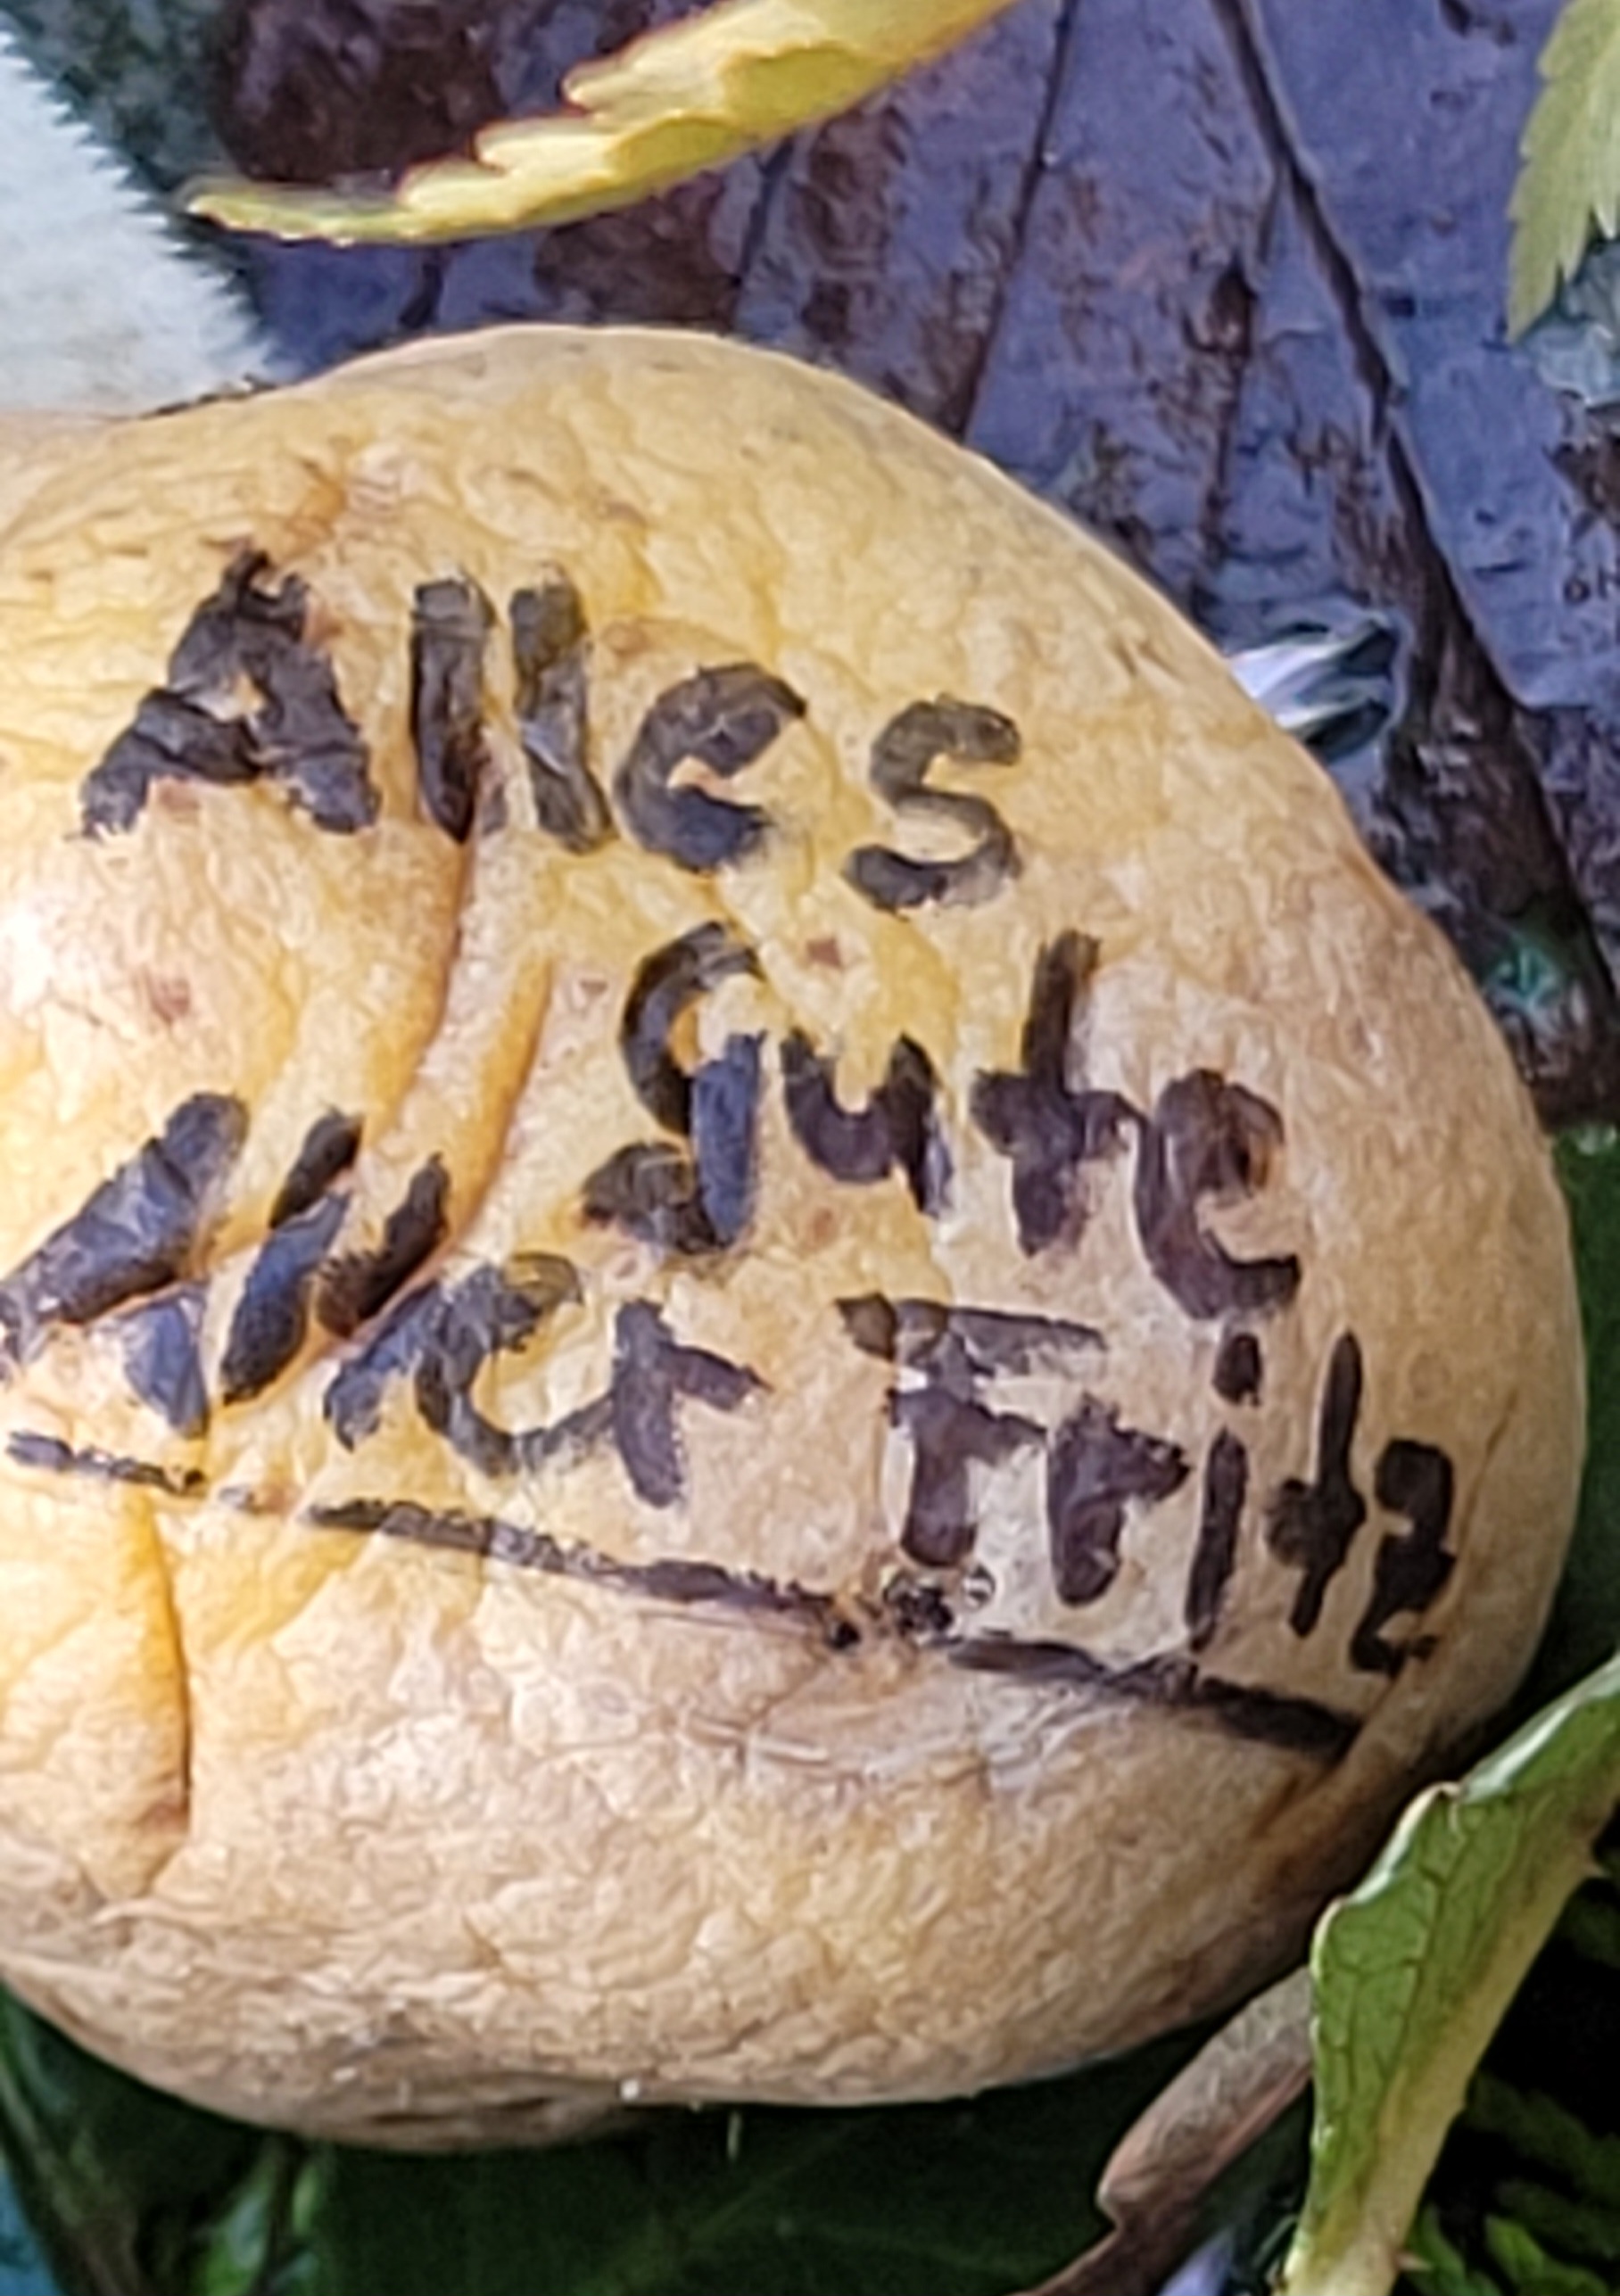 Alles
gute
Fritz